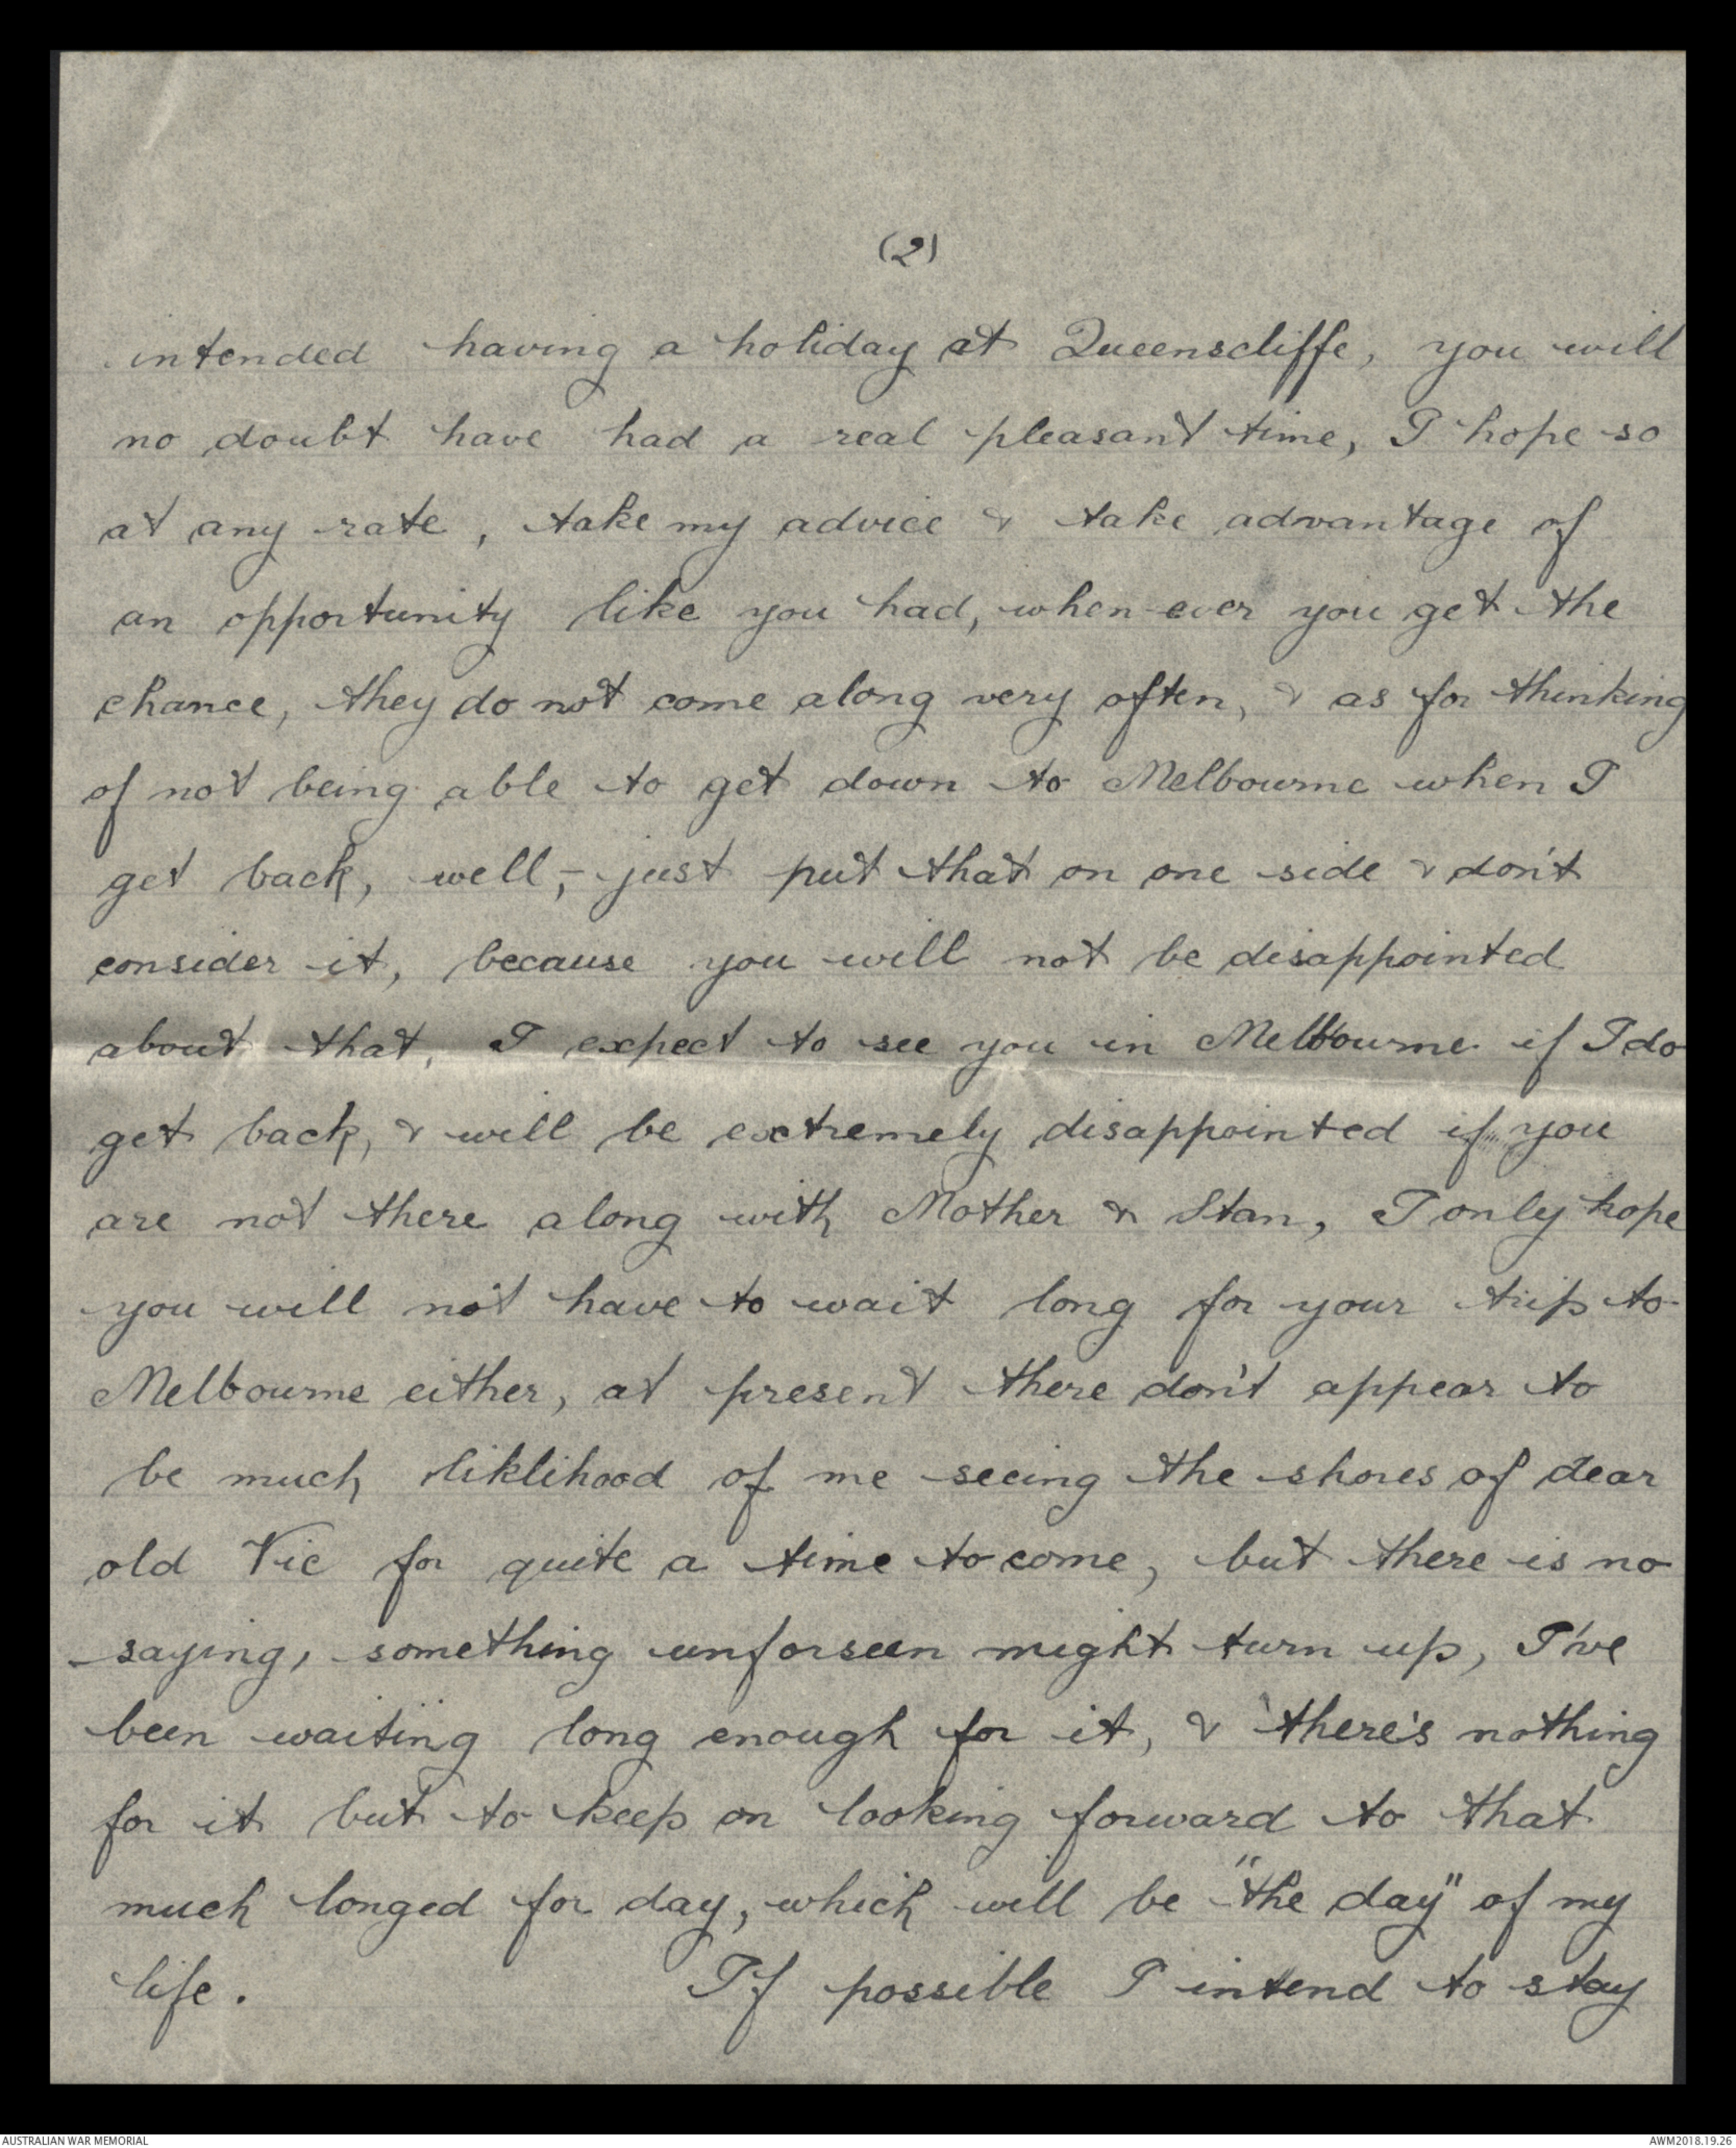 (2)
intended having a holiday at Queenscliffe, you will
no doubt have had a real pleasant time, I hope so
at any rate, take my advice & take advantage of
an opportunity like you had, when-ever you get the
chance, they do not come along very often, & as for thinking
of not being able to get down to Melbourne when I
get back, well,- just put that on one side & don't
consider it, because you will not be disappointed
about that, I expect to see you in Melbourne if I do
get back, & will be extremely disappointed if you
are not there along with Mother & Stan, I only hope
you will not have to wait long for your trip to
Melbourne either, at present there don't appear to
be much liklihood of me seeing the shores of dear
old Vic for quite a time to come, but there is no
saying, something unforseen might turn up, I've
been waiting long enough for it, & there's nothing
for it but to keep on looking forward to that
much longed for day, which will be "the day" of my
life. If possible I intend to stay
AUSTRALIAN WAR MEMORIAL AWM2018.19.26